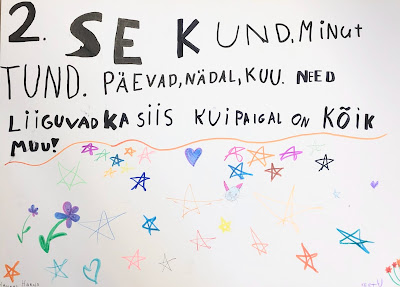 2. SEKUND, MINUT
TUND. PÄEVAD, NÄDAL, KUU. NEED
LIIGUVAD KA SIIS KUI PAIGAL ON KÕIK
MUU!